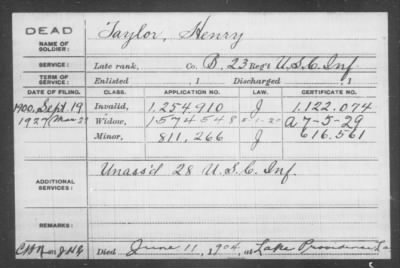 DEAD
NAME OF SOLDIER:
Taylor, Henry
SERVICE:
Late rank, Co. B, 23 Reg't U.S.C. Inf.
TERM OF SERVICE:
Enlisted , 1 Discharged , 1
DATE OF FILING. CLASS. APPLICATION NO. LAW. CERTIFICATE NO.
1900, Sept. 19 Invalid, 1,254,910 J 1,122,074
1927 Widow, 1574548 A 7-5-29
Minor, 811,266 J 616,561
ADDITIONAL SERVICES:
Unass'd 28 U.S.C. Inf.
REMARKS:
Died June 11, 1904, at Lake Providence, La